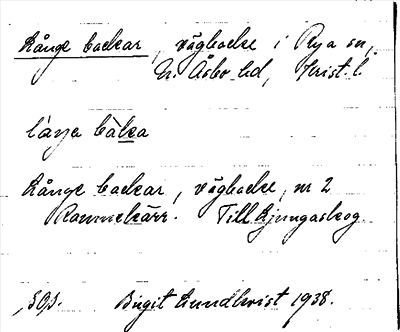 Långe backar, vägbacke i Rya sn,
N. Åsbo hd, Krist. l.
lánga bàka
Långe backar, vägbacke, nr 2
Rammekärr. Till Ljungaskog
Birgit Lundkvist 1938.